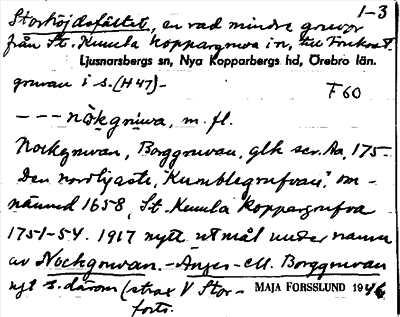 1–3
Storhöjdsfältet, en rad mindre gruvor
från St. Kumla koppargruva i n, till
Ljusnarsbergs sn, Nya Kopparbergs hd, Örebro län.
gruvan i s. (H 47)–
F 60
– – – nòkgru̇va, m. fl.
Nockgruvan, Borggruvan, glk ser. Aa, 175–
Den nordligaste, "Kumblegrufvan", om–
nämnd 1658, St. Kumla Koppargrufva
1751–54. 1917 nytt utmål under namn
av Nockgruvan. – Anges – M. Borggruvan
ngt s. därom (strax V Stor–
forts.
MAJA FORSSLUND 1946